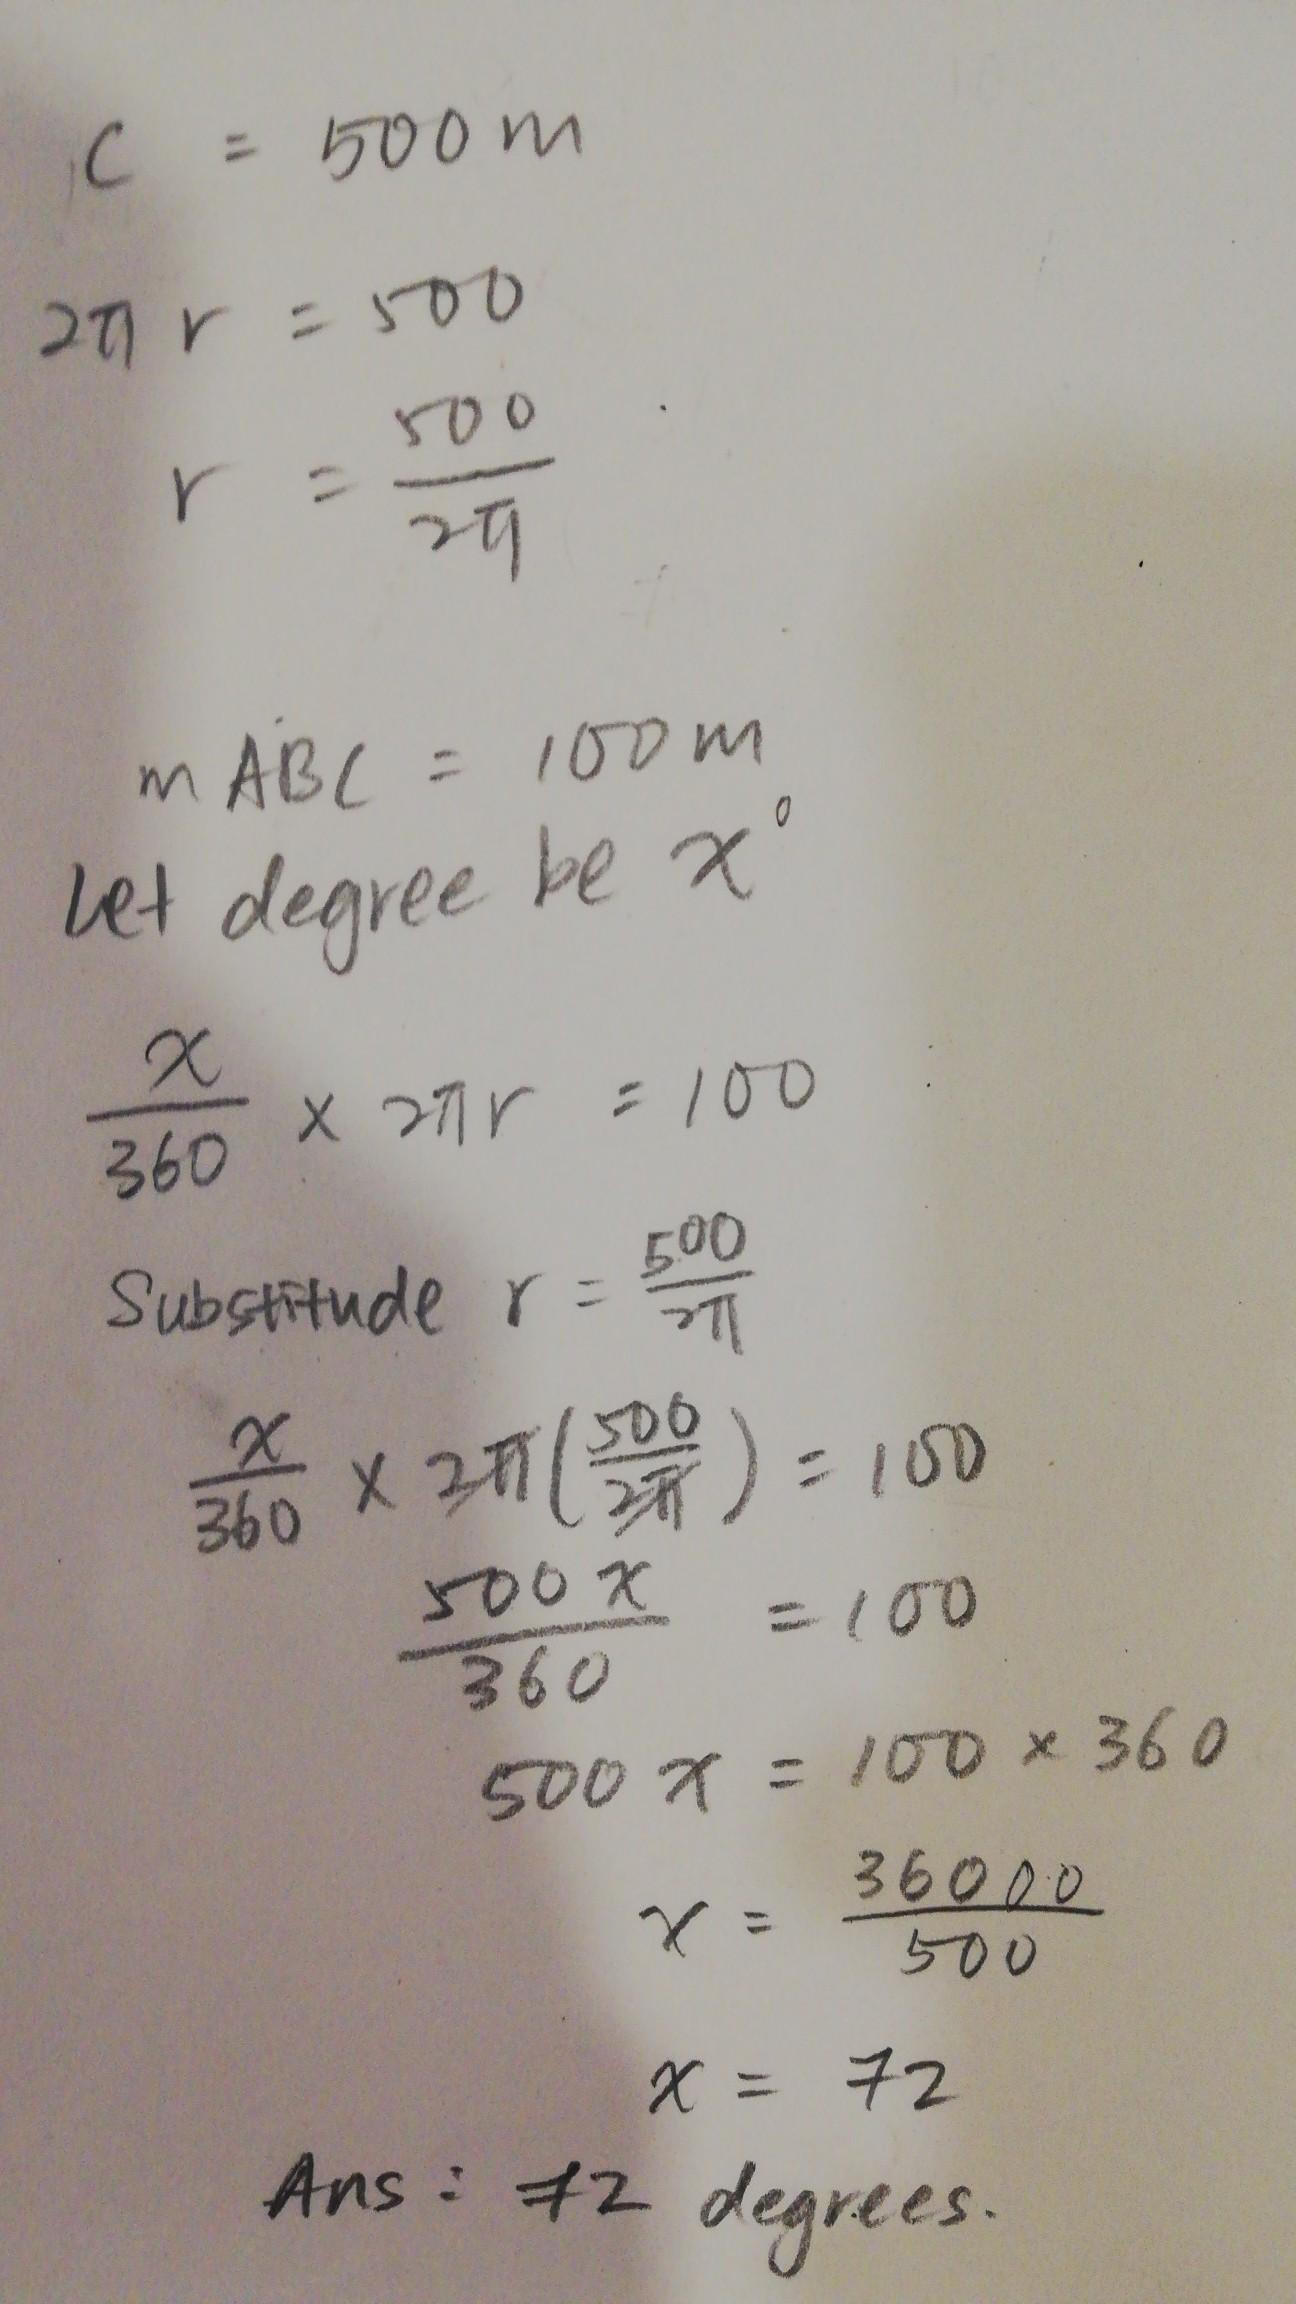 C = 500 m
2π r = 500
r = 500/2π
m ABC = 100 m
Let degree be x°
x/360 × 2πr = 100
Substitude r = 500/2π
x/360 × 2π(500/2π) = 100
500 x/360 = 100
500 x = 100 × 360
x = 36000/500
x = 72
Ans : 72 degrees.